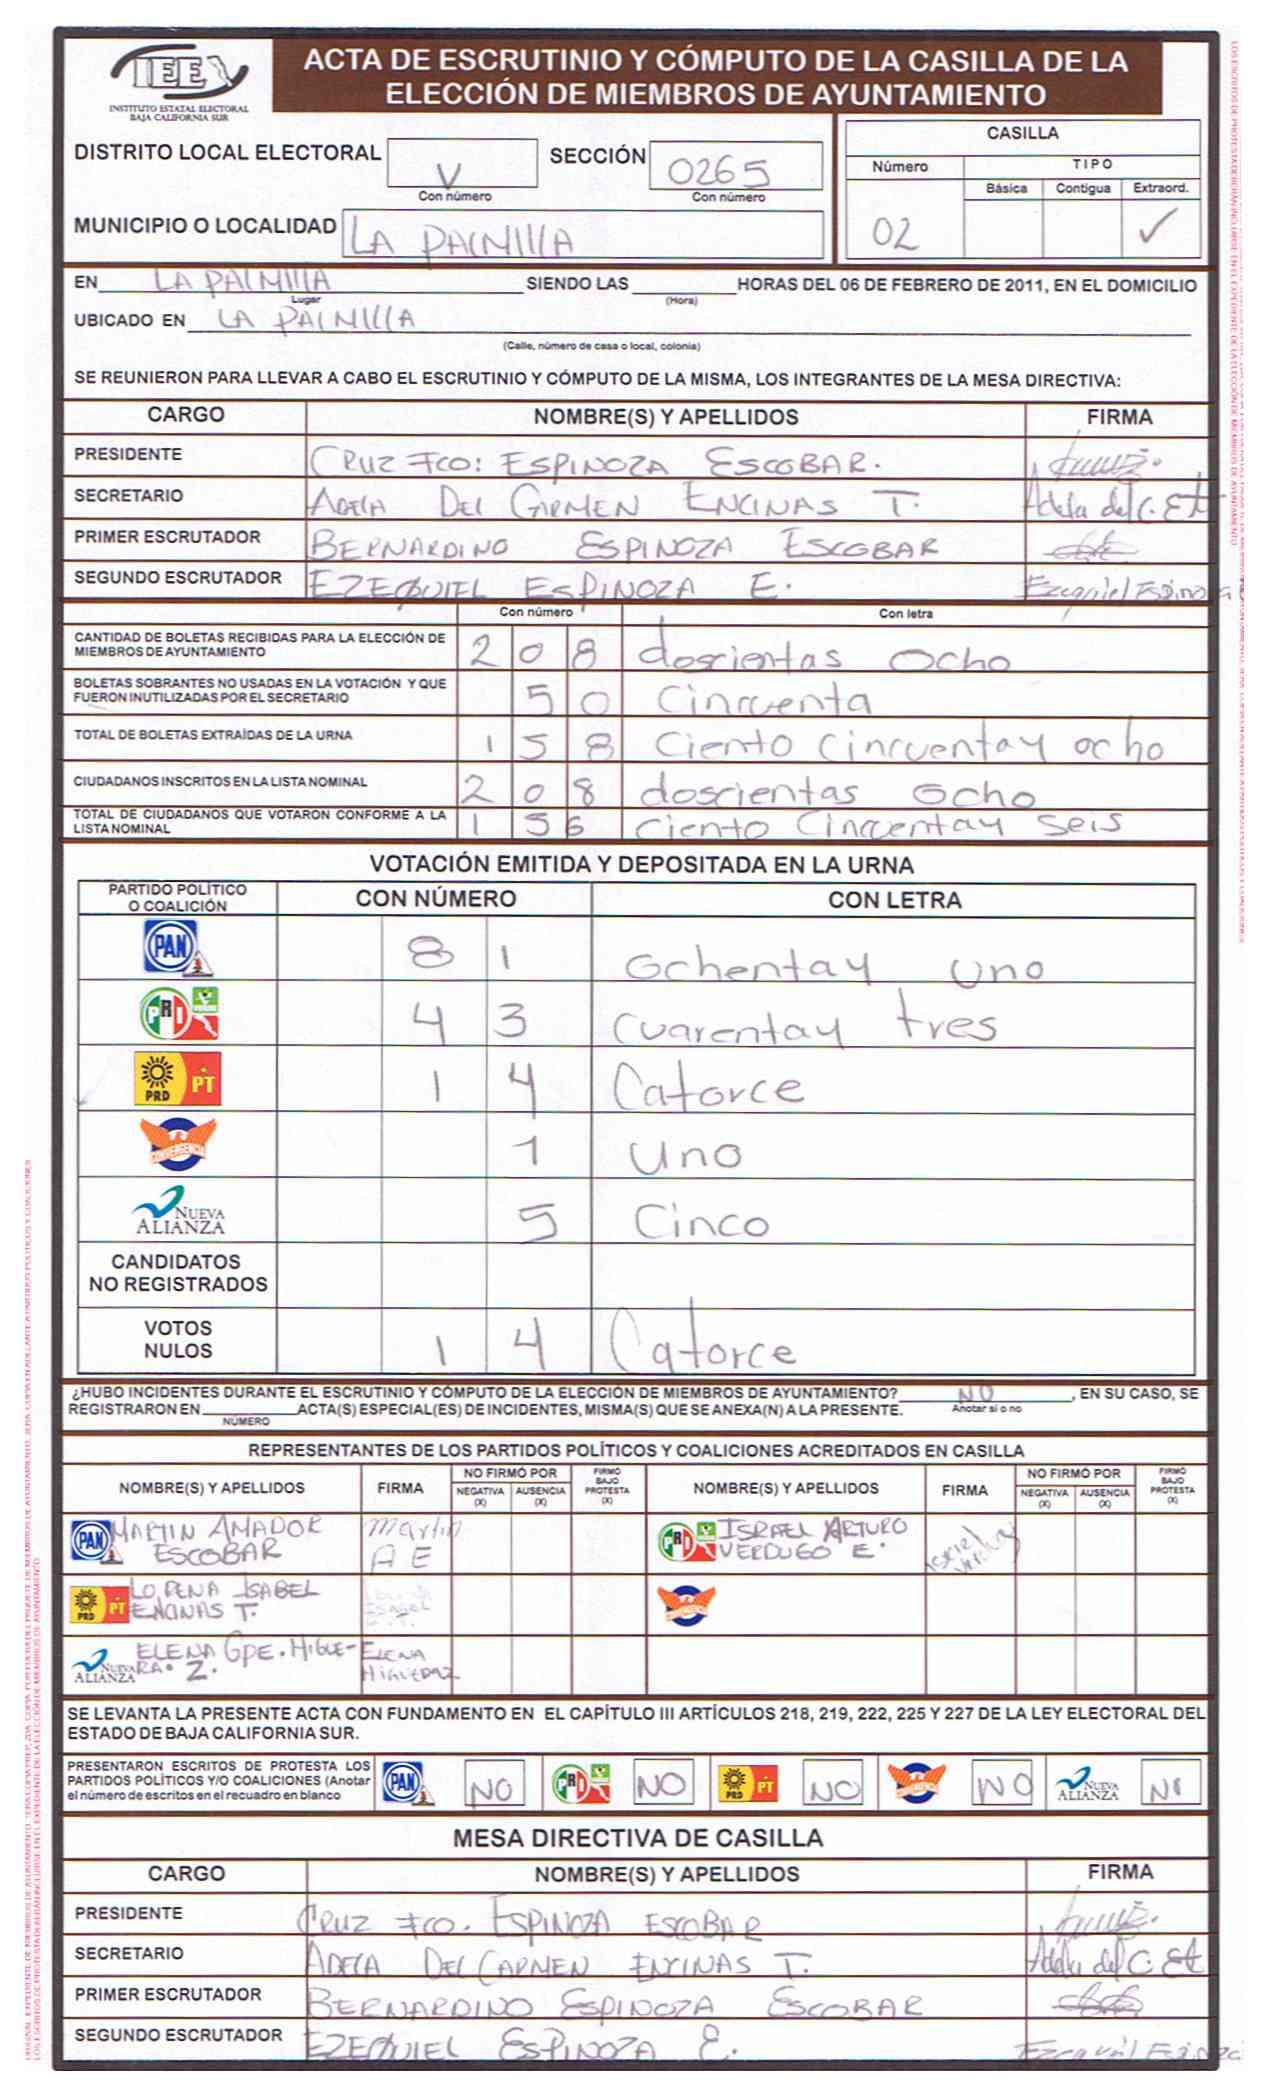 IEE
INSTITUTO ESTATAL ELECTORAL
BAJA CALIFORNIA SUR
ACTA DE ESCRUTINIO Y CÓMPUTO DE LA CASILLA DE LA
ELECCIÓN DE MIEMBROS DE AYUNTAMIENTO
DISTRITO LOCAL ELECTORAL V
Con número
SECCIÓN 0265
Con número
CASILLA
Número TIPO
Básica Contigua Extraord.
02 ✓
MUNICIPIO O LOCALIDAD LA PALMILLA
EN LA PALMILLA SIENDO LAS HORAS DEL 06 DE FEBRERO DE 2011, EN EL DOMICILIO
Lugar (Hora)
UBICADO EN LA PALMILLA
(Calle, número de casa o local, colonia)
SE REUNIERON PARA LLEVAR A CABO EL ESCRUTINIO Y CÓMPUTO DE LA MISMA, LOS INTEGRANTES DE LA MESA DIRECTIVA:
CARGO NOMBRE(S) Y APELLIDOS FIRMA
PRESIDENTE CRUZ FCO: ESPINOZA ESCOBAR.
SECRETARIO ADELA DEL CARMEN ENCINAS T. Adela del C. E t
PRIMER ESCRUTADOR BERNARDINO ESPINOZA ESCOBAR
SEGUNDO ESCRUTADOR EZEQUIEL ESPINOZA E. Ezequiel Espinoza
Con número Con letra
CANTIDAD DE BOLETAS RECIBIDAS PARA LA ELECCIÓN DE
MIEMBROS DE AYUNTAMIENTO 2 0 8 doscientas ocho
BOLETAS SOBRANTES NO USADAS EN LA VOTACIÓN Y QUE
FUERON INUTILIZADAS POR EL SECRETARIO 5 0 Cincuenta
TOTAL DE BOLETAS EXTRAÍDAS DE LA URNA 1 5 8 Ciento Cincuentay ocho
CIUDADANOS INSCRITOS EN LA LISTA NOMINAL 2 0 8 doscientas ocho
TOTAL DE CIUDADANOS QUE VOTARON CONFORME A LA
LISTA NOMINAL 1 5 6 Ciento Cincuentay Seis
VOTACIÓN EMITIDA Y DEPOSITADA EN LA URNA
PARTIDO POLÍTICO
O COALICIÓN CON NÚMERO CON LETRA
PAN 8 1 Ochentay uno
PRI VERDE 4 3 Cuarentay tres
PRD PT 1 4 Catorce
CONVERGENCIA 1 uno
NUEVA
ALIANZA 5 Cinco
CANDIDATOS
NO REGISTRADOS
VOTOS
NULOS 1 4 Catorce
¿HUBO INCIDENTES DURANTE EL ESCRUTINIO Y CÓMPUTO DE LA ELECCIÓN DE MIEMBROS DE AYUNTAMIENTO? NO, EN SU CASO, SE
REGISTRARON EN ACTA(S) ESPECIAL(ES) DE INCIDENTES, MISMA(S) QUE SE ANEXA(N) A LA PRESENTE. Anotar si o no
NÚMERO
REPRESENTANTES DE LOS PARTIDOS POLÍTICOS Y COALICIONES ACREDITADOS EN CASILLA
NOMBRE(S) Y APELLIDOS FIRMA NO FIRMÓ POR NEGATIVA (X) AUSENCIA (X) FIRMÓ BAJO PROTESTA (X) NOMBRE(S) Y APELLIDOS FIRMA NO FIRMÓ POR NEGATIVA (X) AUSENCIA (X) FIRMÓ BAJO PROTESTA (X)
PAN MARTIN AMADOR Martin PRI ISRAEL ARTURO
ESCOBAR A E VERDUGO E.
PRD PT LORENA ISABEL
ENCINAS T.
CONVERGENCIA
NUEVA ALIANZA ELENA GPE. HIGUE- ELENA
RA. Z.
SE LEVANTA LA PRESENTE ACTA CON FUNDAMENTO EN EL CAPÍTULO III ARTÍCULOS 218, 219, 222, 225 Y 227 DE LA LEY ELECTORAL DEL
ESTADO DE BAJA CALIFORNIA SUR.
PRESENTARON ESCRITOS DE PROTESTA LOS
PARTIDOS POLÍTICOS Y/O COALICIONES (Anotar
el número de escritos en el recuadro en blanco
PAN NO PRI NO PRD PT NO CONVERGENCIA NO NUEVA ALIANZA
MESA DIRECTIVA DE CASILLA
CARGO NOMBRE(S) Y APELLIDOS FIRMA
PRESIDENTE CRUZ FCO. ESPINOZA ESCOBAR
SECRETARIO ADELA DEL CARMEN ENCINAS T. Adela del C. E t
PRIMER ESCRUTADOR BERNARDINO ESPINOZA ESCOBAR
SEGUNDO ESCRUTADOR EZEQUIEL ESPINOZA E. Ezequiel Espinoza